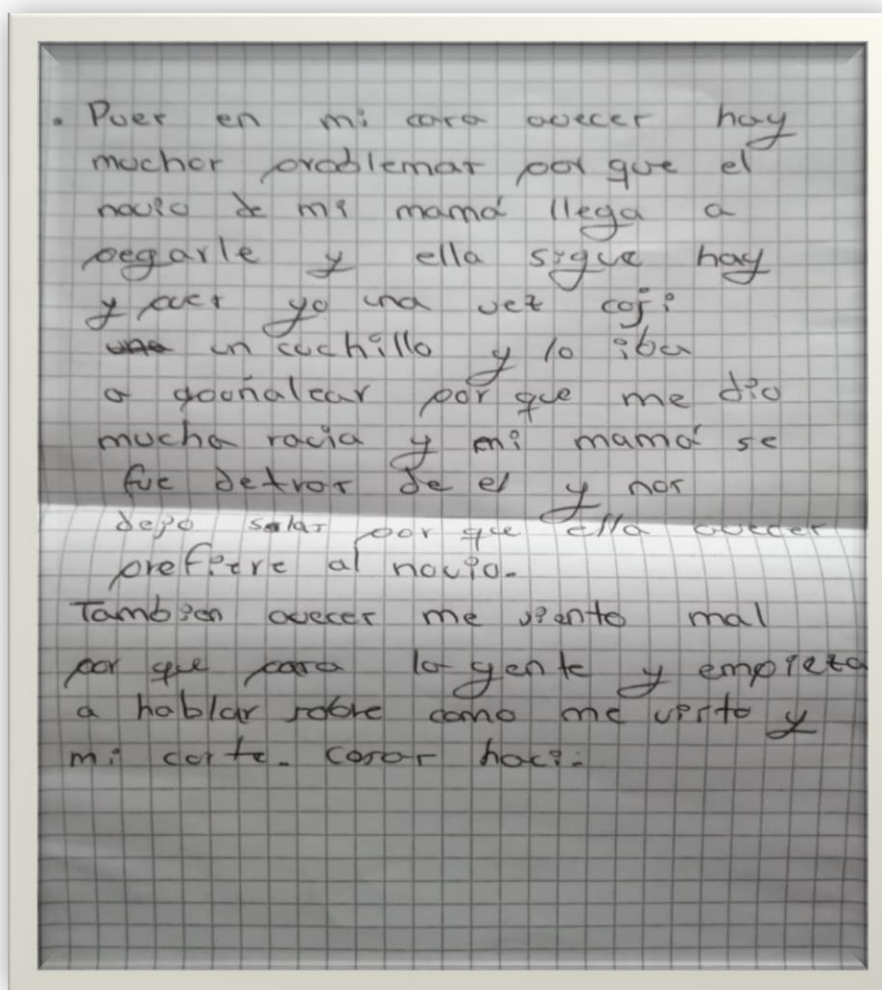 . Pues en mi casa aveces hay
muchos problemas por que el
novio de mi mamá llega a
pegarle y ella sigue hay
y pues yo una vez coji
una un cuchillo y lo iba
a apuñalear por que me dio
mucha racia y mi mamá se
fue detras de el y nos
dejo solas por que ella aveces
prefiere al novio.
Tambien aveces me siento mal
por que pasa la gente y empieza
a hablar sobre como me visto y
mi corte. cosas haci.